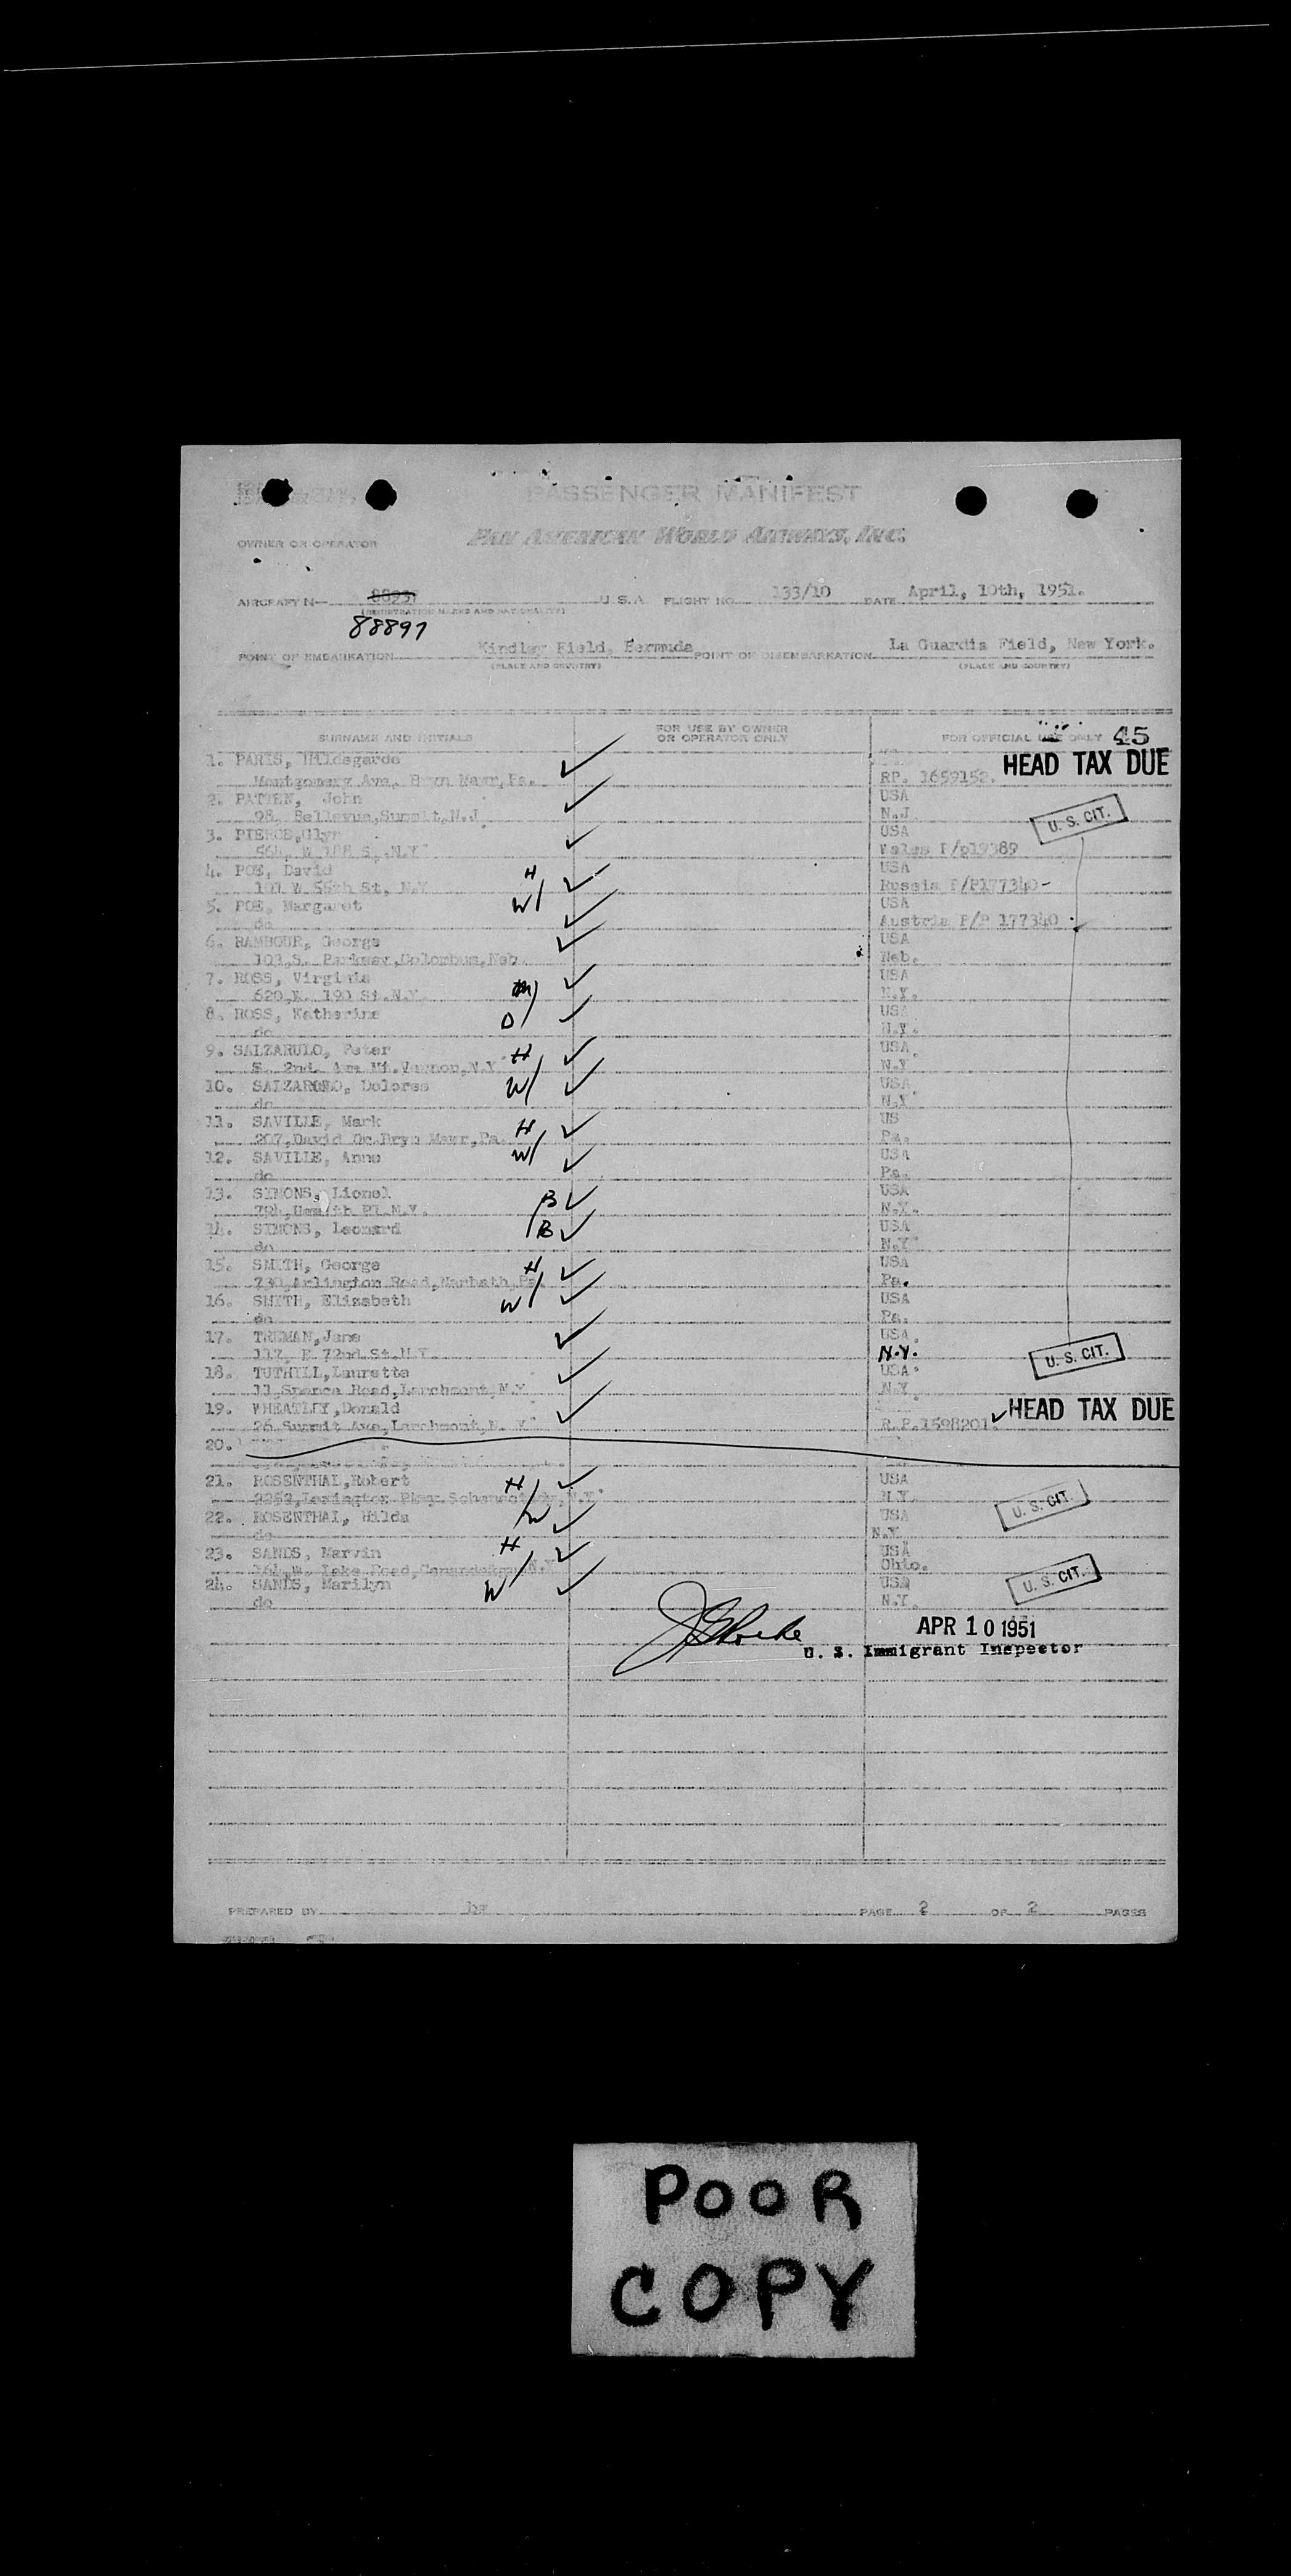 PASSENGER MANIFEST
OWNER OR OPERATOR PAN AMERICAN WORLD AIRWAYS, INC.
AIRCRAFT N— U.S.A FLIGHT NO. 133/10 DATE April, 10th, 1951.
(REGISTRATION MARKS AND NATIONALITY)
88897
POINT OF EMBARKATION Kindley Field, Bermuda POINT OF DISEMBARKATION La Guardia Field, New York.
(PLACE AND COUNTRY) (PLACE AND COUNTRY)
SURNAME AND INITIALS FOR USE BY OWNER OR OPERATOR ONLY FOR OFFICIAL USE ONLY 45
1. PARIS, Hildegarde HEAD TAX DUE
Montgomery Ave, Bryn Mawr, Pa. ✓ RP. 1659152.
2. PATTEN, John USA
98, Bellevue, Summit, N.J. ✓ N.J. U. S. CIT.
3. PIERCE, Glyn USA
✓ Wales P/p19389
4. POE, David H USA
101 W 55th St, N.Y ✓ Russia P/P177340-
5. POE, Margaret W/ USA
do ✓ Austria P/P 177340
6. RAMBOUR, George ✓ USA
103, S. Parkway, Colombus, Neb. Neb.
7. ROSS, Virginia M ✓ USA
620, 190 St. N.Y. N.Y.
8. ROSS, Katherine D/ ✓ USA
do N.Y.
9. SALZARULO, Peter H ✓ USA
S. 2nd. Ave Mt. Vernon, N.Y N.Y
10. SALZARULO, Dolores W/ ✓ USA
do N.Y
11. SAVILLE, Mark H ✓ US
207, David Dr. Bryn Mawr, Pa. Pa.
12. SAVILLE, Anne W/ ✓ USA
do Pa.
13. SIMONS, Lionel B ✓ USA
N.Y.
14. SIMONS, Leonard /B ✓ USA
do N.Y
15. SMITH, George H ✓ USA
730, Arlington Road, Narbath, Pa. Pa.
16. SMITH, Elizabeth W/ ✓ USA
do Pa.
17. TRUMAN, Jane ✓ USA.
117, E 72nd. St. N.Y. N.Y. U. S. CIT.
18. TUTHILL, Lauretta ✓ USA
11, Spence Road, Larchmont, N.Y N.Y.
19. WHEATLEY, Donald ✓ HEAD TAX DUE
26 Summit Ave, Larchmont, N. Y R.P.1598201. ✓
20.
21. ROSENTHAL, Robert H/ ✓ USA
2253, Lexington Pkwy. Schenectady, N.Y. N.Y. U. S. CIT.
22. ROSENTHAL, Hilda /W ✓ USA
do N.Y
23. SANDS, Marvin H ✓ USA
Lake Road, Canandaigua N.Y Ohio.
24. SANDS, Marilyn W/ ✓ USA U. S. CIT.
do N.Y.
APR 10 1951
U. S. Immigrant Inspector
PREPARED BY PAGE 2 OF 2 PAGES
POOR
COPY